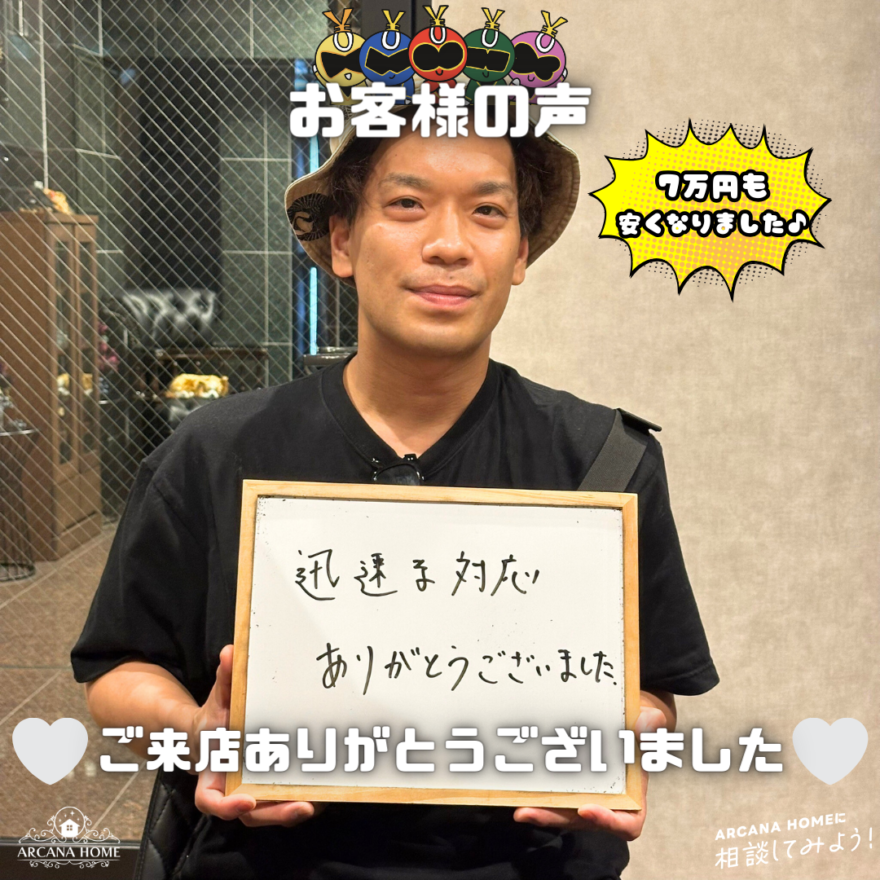 お客様の声
7万円も
安くなりました♪
迅速な対応
ありがとうございました.
ご来店ありがとうございました
ARCANA HOME
ARCANA HOMEに
相談してみよう!